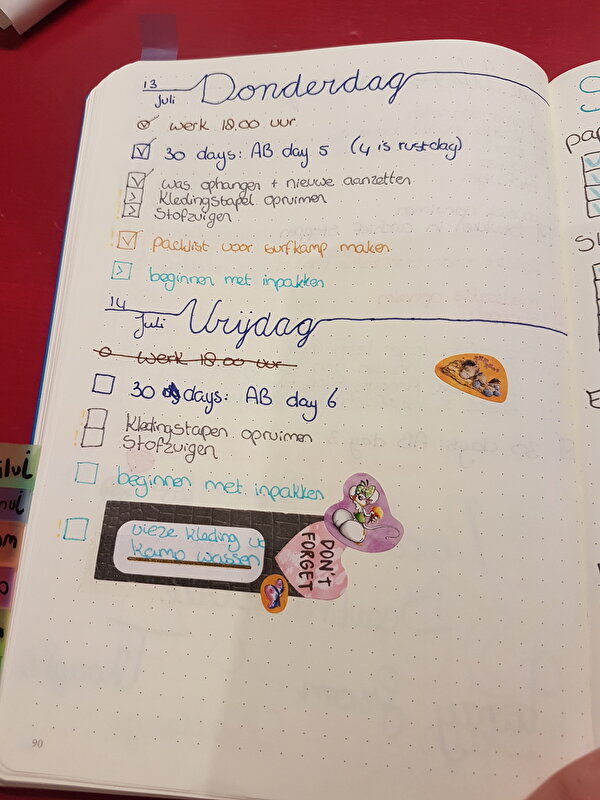 13
Juli
Donderdag
werk 18.00 uur
30 days: AB day 5 (4 is rustdag)
was ophangen + nieuwe aanzetten
Kledingstapel opruimen
Stofzuigen
packlist voor surfkamp maken
beginnen met inpakken
14
Juli
Vrijdag
werk 18.00 uur
30 days: AB day 6
Kledingstapen opruimen
Stofzuigen
beginnen met inpakken
vieze kleding
Kamp wassen
DON'T
FORGET
90